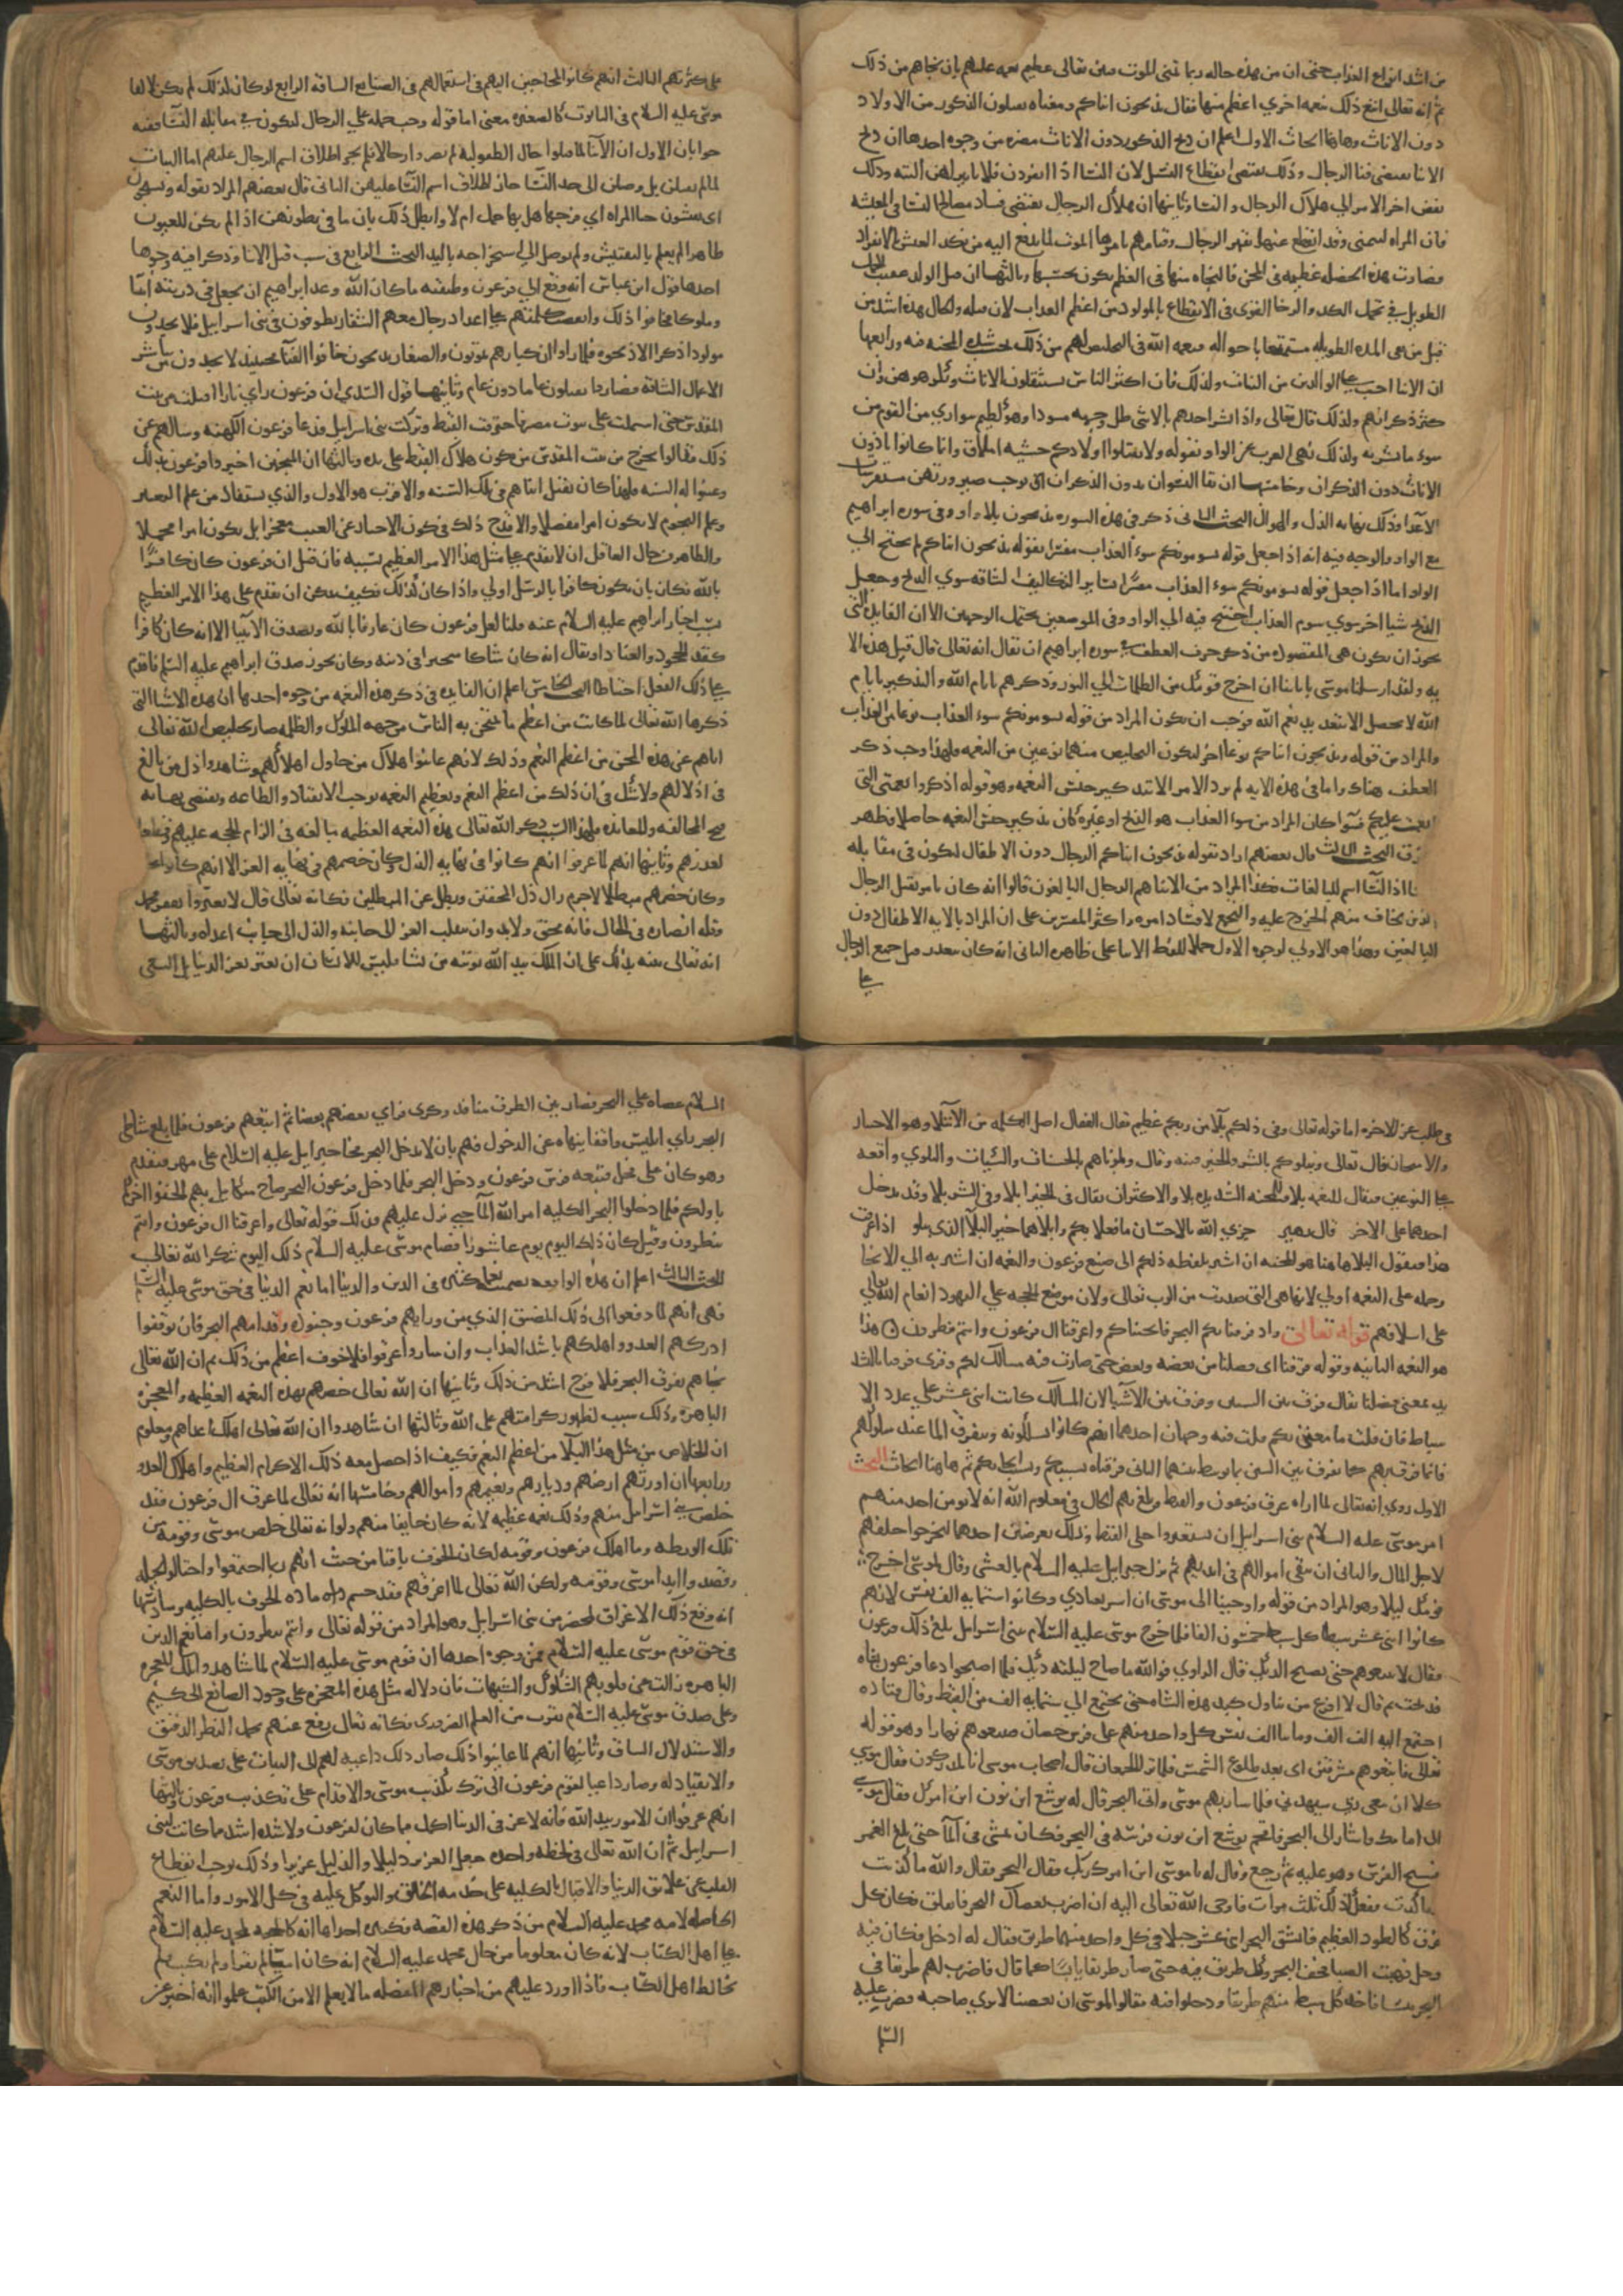 من اشد انواع العذاب حتى ان من هذه حاله ربما تمنى الموت فبين تعالى عظيم نعمه عليهم بان نجاهم من ذلك
ثم انه تعالى اتبع ذلك بنعمه اخري اعظم منها فقال يذبحون ابناكم ومعناه يقتلون الذكور من الاولاد
دون الاناث وهاهنا ابحاث الاول اعلم ان ذبح الذكور دون الاناث مضره من وجوه احدها ان ذبح
الابنا يقتضى فنا الرجال وذلك يقتضى انقطاع النسل لان النسا اذا انفردن فلا تاثير لهن البته وذلك
يفضى اخر الامر الي هلاك الرجال والنسا وثانيها ان هلاك الرجال يقتضى فساد مصالح النسا في المعيشه
فان المراه لتتمنى وقد انقطع عنها تعهد الرجال وقيامهم بامرها الموت لما يقع اليه من نكد العيش بالانفراد
فصارت هذه الخصله عظيمه في المحن فالنجاه منها في العظم تكون بحسبها وثالثها ان قتل الولد عقيب الحمل
الطويل في تحمل الكد والرجا القوى في الانتفاع بالمولود من اعظم العذاب لان قتله والحال هذه اشد من
قتل من بقى المده الطويله مستمتعا باحواله فنعمه الله في التخليص لهم من ذلك بحسب شدة المحنه فيه ورابعها
ان الابنا احب على الوالدين من البنات ولذلك فان اكثر الناس يستثقلون الاناث
كثر ذكرانهم ولذلك قال تعالى واذا بشر احدهم بالانثى ظل وجهه مسودا وهو كظيم يتوارى من القوم من
سوء ما بشر به ولذلك نهى العرب عن الواد بقوله ولا تقتلوا اولادكم خشيه املاق وانما كانوا يئدون
الاناث دون الذكران وخامسها ان بقا النسوان بدون الذكران يوجب صيرورتهن مستفرشات
الاعدا وذلك نهايه الذل والهوان البحث الثانى ذكر في هذه السوره يذبحون بلا واو وفي سوره ابراهيم
مع الواو والوجه فيه انه اذا جعل قوله يسومونكم سوء العذاب مفسرا بقوله يذبحون ابناكم لم يحتج الي
الواو اما اذا جعل قوله يسومونكم سوء العذاب مفسرا بساير التكاليف الشاقه سوي الذبح وجعل
الذبح شيا اخر سوي سوم العذاب احتيج فيه الي الواو وفي الموضعين يحتمل الوجهين الا ان الفايده التي
يجوز ان تكون هي المقصوده من ذكر حرف العطف في سوره ابراهيم ان يقال انه تعالى قال قبل هذه الا
يه ولقد ارسلنا موسى باياتنا ان اخرج قومك من الظلمات الي النور وذكرهم بايام الله والتذكير بايام
الله لا يحصل الا بتعديد نعم الله فوجب ان يكون المراد من قوله يسومونكم سوء العذاب نوعا من العذاب
والمراد من قوله ويذبحون ابناكم نوعا اخر ليكون التخليص منهما نوعين من النعمه فلهذا وجب ذكر
العطف هناك واما في هذه الايه لم يرد الامر الا بتذكير جنس النعمه وهو قوله اذكروا نعمتى التى
انعمت عليكم فسوا كان المراد من سوء العذاب هو الذبح او غيره كان تذكير جنس النعمه حاصلا فظهر
الفرق البحث الثالث قال بعضهم اراد بقوله يذبحون ابناكم الرجال دون الاطفال ليكون في مقابله
النسا اذ النسا اسم للبالغات فكذا المراد من الابنا هم الرجال البالغون قالوا انه كان يامر بقتل الرجال
الذين يخاف منهم الخروج عليه والتجمع لافساد امره واكثر المفسرين على ان المراد بالايه الاطفال دون
البالغين وهذا هو الاولي لوجوه الاول حملا للفظ الابنا على ظاهره الثانى انه كان يتعذر قتل جميع الرجال
على
على كثرتهم الثالث انهم كانوا محتاجين اليهم في استعمالهم في الصنايع الشاقه الرابع لو كان لذلك لم يكن لالقا
موسى عليه السلام في التابوت حال صغره معنى اما قوله وجب حمله على الرجال ليكون في مقابله النسا ففيه
جوابان الاول ان الابنا لما قتلوا حال الطفوليه لم يصيروا رجالا فلم يجز اطلاق اسم الرجال عليهم اما البنات
لما لم يقتلن بل وصلن الى حد النسا جاز اطلاق اسم النسا عليهن الثانى قال بعضهم المراد بقوله ويستحيون
اى يفتشون حيا المراه اي فرجها هل بها حمل ام لا وابطل ذلك بان ما في بطونهن اذا لم يكن للعيون
ظاهرا لم يعلم بالتفتيش ولم يوصل الى استخراجه باليد البحث الرابع في سبب قتل الابنا وذكروا فيه وجوها
احدها قول ابن عباس انه وقع الى فرعون وطبقته ما كان الله وعد ابراهيم ان يجعل في ذريته انبيا
وملوكا فخافوا ذلك واتفقت كلمتهم على اعداد رجال معهم الشفار يطوفون في بنى اسرايل فلا يجدون
مولودا ذكرا الا ذبحوه فلما راوا ان كبارهم يموتون والصغار يذبحون خافوا الفنا فحينئذ لا يجدون من يباشر
الاعمال الشاقه فصاروا يقتلون عاما دون عام وثانيها قول السدي ان فرعون راي نارا اقبلت من بيت
المقدس حتى اشتملت على بيوت مصر فاحرقت القبط وتركت بنى اسرايل فدعا فرعون الكهنه وسالهم عن
ذلك فقالوا يخرج من بيت المقدس من يكون هلاك القبط على يده وثالثها ان المنجمين اخبروا فرعون بذلك
وعينوا له السنه فلهذا كان يقتل ابناهم في تلك السنه والاقرب هو الاول والذي يستفاد من علم التعبير
وعلم النجوم لا يكون امرا مفصلا والا قدح ذلك في كون الاخبار عن الغيب معجزا بل يكون امرا مجملا
والظاهر من حال العاقل ان لا يقدم على مثل هذا الامر العظيم بسببه فان قيل ان فرعون كان كافرا
بالله فكان بان يكون كافرا بالرسل اولي واذا كان كذلك فكيف يمكن ان يقدم على هذا الامر العظيم
بسبب اخبار ابراهيم عليه السلام عنه قلنا لعل فرعون كان عارفا بالله وبصدق الانبيا الا انه كان كافرا
كفر الجحود والعناد او يقال انه كان شاكا متحيرا في دينه وكان يجوز صدق ابراهيم عليه السلام فاقدم
على ذلك الفعل احتياطا البحث الخامس اعلم ان الفايده في ذكر هذه النعمه من وجوه احدها ان هذه الاشيا التي
ذكرها الله تعالى لما كانت من اعظم ما يمتحن به الناس من جهه الملوك والظلمه صار تخليص الله تعالى
اياهم من هذه المحن من اعظم النعم وذلك لانهم عاينوا هلاك من حاول اهلاكهم وشاهدوا ذل من بالغ
في اذلالهم ولا شك في ان ذلك من اعظم النعم وتعظيم النعمه يوجب الانقياد والطاعه ويقتضى نهايه
قبح المخالفه والمعانده فلهذا السبب ذكر الله تعالى هذه النعمه العظيمه مبالغه في الزام الحجه عليهم وقطعا
لعذرهم وثانيها انهم لما عرفوا انهم كانوا في نهايه الذل وكان خصمهم في نهايه العز الا انهم كانوا
وكان خصمهم مبطلا لا جرم زال ذل المحقين وبطل عز المبطلين فكانه تعالى قال لا تغتروا بفقر محمد
وقله انصاره في الحال فانه محق ولا بد وان ينقلب العز الى جانبه والذل الى جانب اعداه وثالثها
انه تعالى نبه بذلك على ان الملك بيد الله يوتيه من يشا فليس للانسان ان يغتر بعز الدنيا بل السعى
في طلب عز الاخره اما قوله تعالى وفي ذلكم بلا من ربكم عظيم قال القفال اصل الكلمه من الابتلا وهو الاختبار
والامتحان قال تعالى ونبلوكم بالشر والخير فتنه وقال وبلوناهم بالحسنات والسيئات والبلوي واقعه
على النوعين فيقال للنعمه بلا وللمحنه الشديده بلا والاكثر ان يقال في الخير ابلا وفي الشر بلا وقد يدخل
احدهما على الاخر قال زهير جزي الله بالاحسان ما فعلا بكم وابلاهما خير البلا الذى يبلو اذا عرفت
هذا فنقول البلا هاهنا هو المحنه ان اشير بلفظه ذلكم الى صنع فرعون والنعمه ان اشير به الي الانجا
وحمله على النعمه اولي لانها هى التى صدرت من الرب تعالى ولان موضع الحجه علي اليهود انعام الله تعالى
على اسلافهم قوله تعالى واذ فرقنا بكم البحر فانجيناكم واغرقنا ال فرعون وانتم تنظرون هذا
هو النعمه الثانيه وقوله فرقنا اى فصلنا بين بعضه وبعض حتى صارت فيه مسالك لكم وقرى فرقنا بالتشد
يد بمعنى فصلنا يقال فرق بين الشيئين وفرق بين الاشيا لان المسالك كانت اثنى عشر علي عدد الا
سباط فان قلت ما معنى بكم قلت فيه وجهان احدهما انهم كانوا يسلكونه ويتفرق الما عند سلوكهم
فانما فرق بهم كما يفرق بين الشيئين بما توسط بينهما الثانى فرقناه بسببكم وبسبب انجايكم ثم هاهنا ابحاث البحث
الاول روي انه تعالى لما اراد غرق فرعون والقبط وبلغ بهم الحال في معلوم الله انه لا يومن احد منهم
امر موسى عليه السلام بنى اسرايل ان يستعيروا حلى القبط وذلك لغرضين احدهما ليخرجوا خلفهم
لاجل المال والثانى ان تبقى اموالهم في ايديهم ثم نزل جبرايل عليه السلام بالعشى وقال لموسى اخرج
قومك ليلا وهو المراد من قوله واوحينا الى موسى ان اسر بعبادي وكانوا ستمايه الف نفس لانهم
كانوا اثنى عشر سبطا كل سبط خمسون الفا فلما خرج موسى عليه السلام ببنى اسرايل بلغ ذلك فرعون
فقال لا تتبعوهم حتى يصيح الديك قال الراوي فوالله ما صاح ليلته ديك فلما اصبحوا دعا فرعون بشاه
فذبحت ثم قال لا افرغ من تناول كبد هذه الشاه حتى يجتمع الي ستمايه الف من القبط وقال قتاده
اجتمع اليه الف الف ومايتا الف نفس كل واحد منهم على فرس حصان فتبعوهم نهارا وهو قوله
تعالى فاتبعوهم مشرقين اى بعد طلوع الشمس فلما ترا الجمعان قال اصحاب موسى انا لمدركون فقال موسي
كلا ان معى ربي سيهدينى فلما سار بهم موسى واتى البحر قال له يوشع ابن نون اين امرك فقال موسى
الى امامك واشار الى البحر فاقحم يوشع ابن نون فرسه في البحر فكان يمشى في الما حتى بلغ الغمر
فسبح الفرس وهو عليه ثم رجع وقال له يا موسى اين امرك ربك فقال البحر فقال والله ما كذبت
ما كذبت ففعل ذلك ثلث مرات فاوحى الله تعالى اليه ان اضرب بعصاك البحر فانفلق فكان كل
فرق كالطود العظيم فانشق البحر اثنى عشر جبلا في كل واحد منها طريق فقال له ادخل فكان فيه
وحل فهبت الصبا فجف البحر وكل طريق فيه حتى صار طريقا يابسا كما قال فاضرب لهم طريقا في
البحر يبسا فاخذ كل سبط منهم طريقا ودخلوا فيه فقالوا لموسى ان بعضنا لا يري صاحبه فضرب عليه
السلام
السلام عصاه علي البحر فصار بين الطرق منافذ وكوى فراي بعضهم بعضا ثم اتبعهم فرعون فلما بلغ شاطى
البحر راي ابليس واقفا ينهاه عن الدخول فهم بان لا يدخل البحر فجا جبرايل عليه السلام على مهره فتقدم
وهو كان على فحل فتبعه فرس فرعون ودخل البحر فلما دخل فرعون البحر صاح ميكايل بهم الحقوا اخركم
باولكم فلما دخلوا البحر بالكليه امر الله الما حتى نزل عليهم فذلك قوله تعالى واغرقنا ال فرعون وانتم
تنظرون وقيل كان ذلك اليوم يوم عاشورا فصام موسى عليه السلام ذلك اليوم شكرا لله تعالى
البحث الثالث اعلم ان هذه الواقعه تضمنت نعما كثيره في الدين والدنيا اما نعم الدنيا في حق موسى عليه السلام
فهى انهم لما دفعوا الى ذلك المضيق الذي من ورايهم فرعون وجنوده وقدامهم البحر فان توقفوا
ادركهم العدو واهلكهم باشد العذاب وان ساروا غرقوا فلا خوف اعظم من ذلك ثم ان الله تعالى
نجاهم بفرق البحر فلا فرج اشد من ذلك وثانيها ان الله تعالى خصهم بهذه النعمه العظيمه والمعجزه
الباهره وذلك سبب لظهور كرامتهم على الله وثالثها ان شاهدوا ان الله تعالى اهلك اعداهم ومعلوم
ان الخلاص من مثل هذا البلا من اعظم النعم فكيف اذا حصل معه ذلك الاكرام العظيم واهلاك العدو
ورابعها ان اورثهم ارضهم وديارهم ونعيمهم واموالهم وخامسها انه تعالى لما غرق ال فرعون فقد
خلص بنى اسرايل منهم وذلك نعمه عظيمه لانه كان خايفا منهم ولو انه تعالى خلص موسى وقومه من
تلك الورطه وما اهلك فرعون وقومه لكان الخوف باقيا من حيث انهم ربما اجتمعوا واحتالوا بحيله
وقصدوا ايذا موسى وقومه ولكن الله تعالى لما اغرقهم فقد حسم ماده الخوف بالكليه وسادسها
انه وقع ذلك الاغراق بمحضر من بنى اسرايل وهو المراد من قوله تعالى وانتم تنظرون واما نعم الدين
في حق قوم موسى عليه السلام فمن وجوه احدها ان قوم موسى عليه السلام لما شاهدوا تلك المعجزه
الباهره زالت عن قلوبهم الشكوك والشبهات فان دلاله مثل هذه المعجزه على وجود الصانع الحكيم
وعلى صدق موسى عليه السلام تقرب من العلم الضروري فكانه تعالى رفع عنهم تحمل النظر الدقيق
والاستدلال الشاق وثانيها انهم لما عاينوا ذلك صار ذلك داعيه لهم الى الثبات على تصديق موسى
والانقياد له وصار داعيا لقوم فرعون الى ترك تكذيب موسى والاقدام على تكذيب فرعون وثالثها
انهم عرفوا ان الامور بيد الله فانه لا عز في الدنيا اكمل مما كان لفرعون ولا شده اشد مما كانت لبنى
اسرايل ثم ان الله تعالى في لحظه واحده جعل العزيز ذليلا والذليل عزيزا وذلك يوجب انقطاع
القلب عن علايق الدنيا والاقبال بالكليه على خدمه الخالق والتوكل عليه في كل الامور واما النعم
الحاصله لامه محمد عليه السلام من ذكر هذه القصه فكثيره احداها انه كالحجه لمحمد عليه السلام
على اهل الكتاب لانه كان معلوما من حال محمد عليه السلام انه كان اميا لم يقرا ولم يكتب ولم
يخالط اهل الكتاب فاذا اورد عليهم من اخبارهم المفصله ما لا يعلم الا من الكتب علموا انه اخبر عن